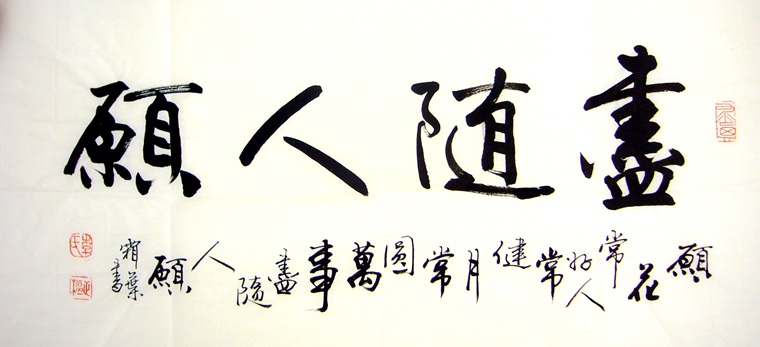 盡随人願
願花常好人常健月常圓萬事盡隨人願
霜葉書